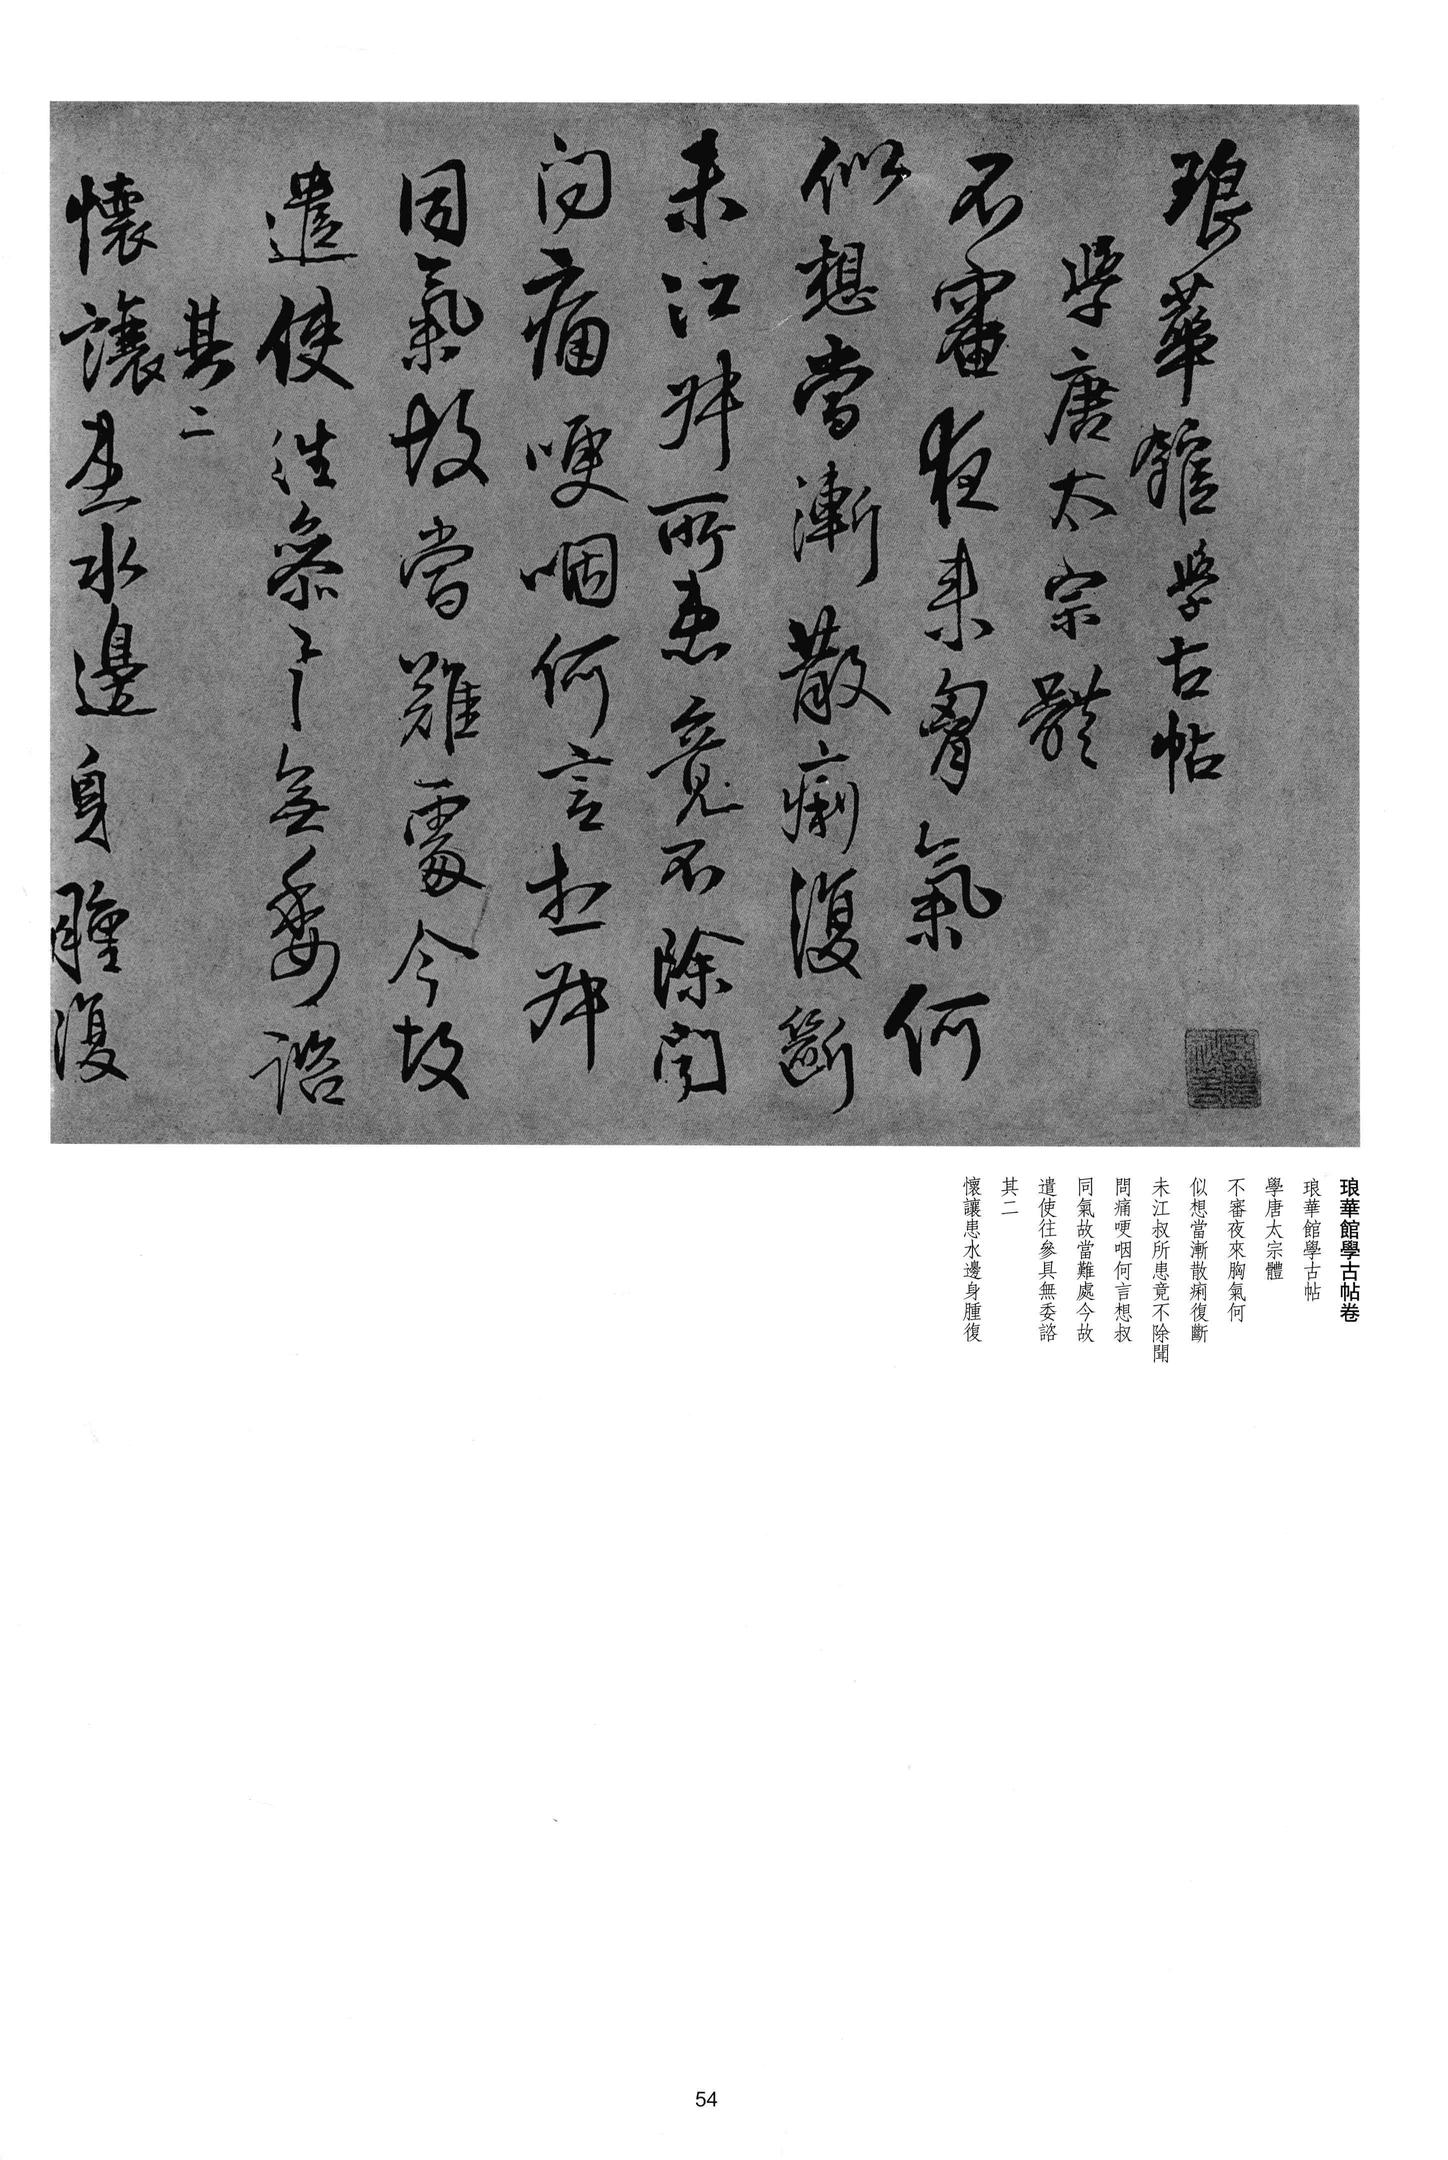 琅華館學古帖
學唐太宗體
不審夜來胸氣何
似想當漸散痢復斷
未江叔所患竟不除聞
問痛哽咽何言想叔
同氣故當難處今故
遣使往參具無委諮
其二
懷讓患水邊身腫復
琅華館學古帖卷
琅華館學古帖
學唐太宗體
不審夜來胸氣何
似想當漸散痢復斷
未江叔所患竟不除聞
問痛哽咽何言想叔
同氣故當難處今故
遣使往參具無委諮
其二
懷讓患水邊身腫復
54